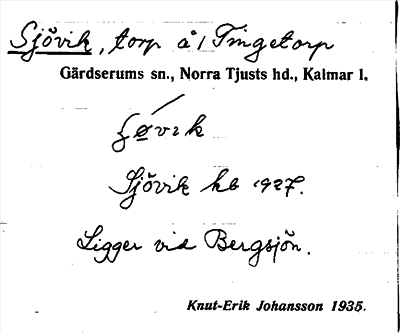 Sjövik, torp å/ Tingetorp
Gärdserums sn., Norra Tjusts hd., Kalmar l.
Sjövik kb 1927.
Ligger vid Bergsjön.
Knut-Erik Johansson 1935.